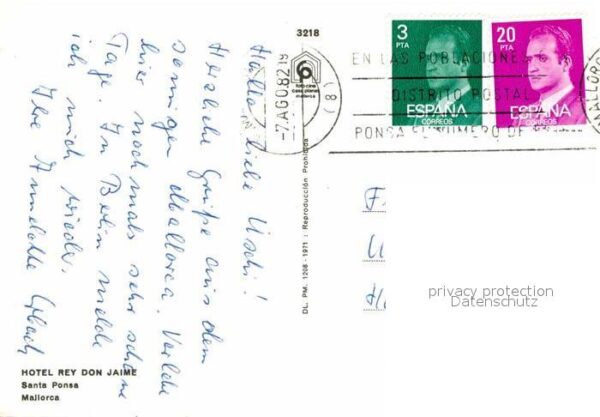 Hallo, liebe Uschi!
Herzliche Grüße aus dem
sonnigen Mallorca. Verlebe
hier nochmals sehr schöne
Tage. In Berlin melde
ich mich wieder.
Ihre Annelotte
HOTEL REY DON JAIME
Santa Ponsa
Mallorca
3218
foto cine
casa planas
mallorca
DL. PM. 1208 - 1971 | Reproducción Prohibida
-7.AGO 82 19
(8)
3
PTA
ESPAÑA
CORREOS
20
PTA
ESPAÑA
CORREOS
EN LAS POBLACIONES
DISTRITO POSTAL
PONGA EL NUMERO DE
MALLORC
F
U
H
privacy protection
Datenschutz